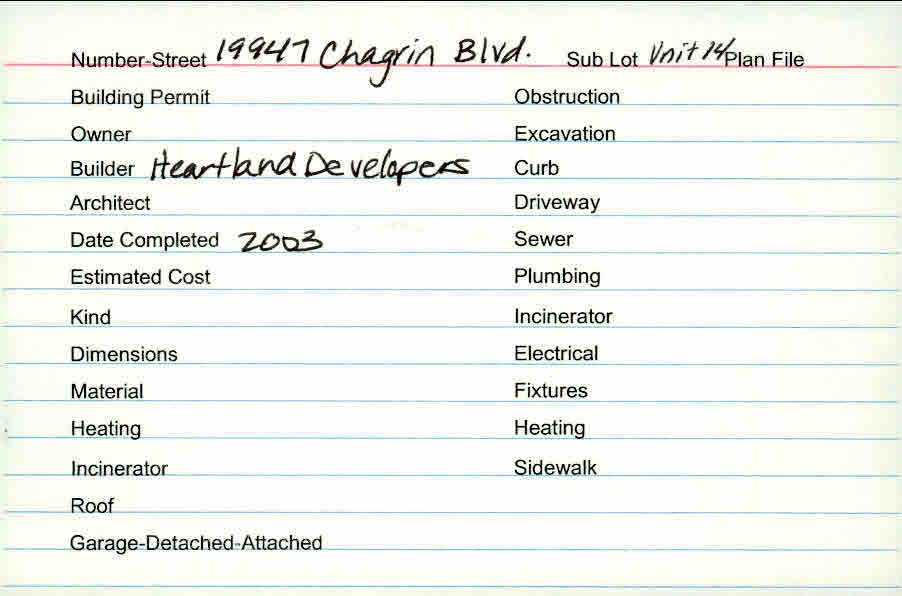 Number-Street 19947 Chagrin Blvd. Sub Lot Unit 14 Plan File
Building Permit Obstruction
Owner Excavation
Builder Heartland Developers Curb
Architect Driveway
Date Completed 2003 Sewer
Estimated Cost Plumbing
Kind Incinerator
Dimensions Electrical
Material Fixtures
Heating Heating
Incinerator Sidewalk
Roof
Garage-Detached-Attached